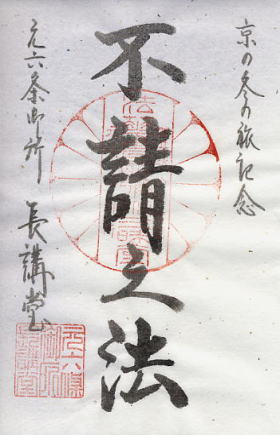 京の冬の旅記念
不請之法
元六条御所 長講堂